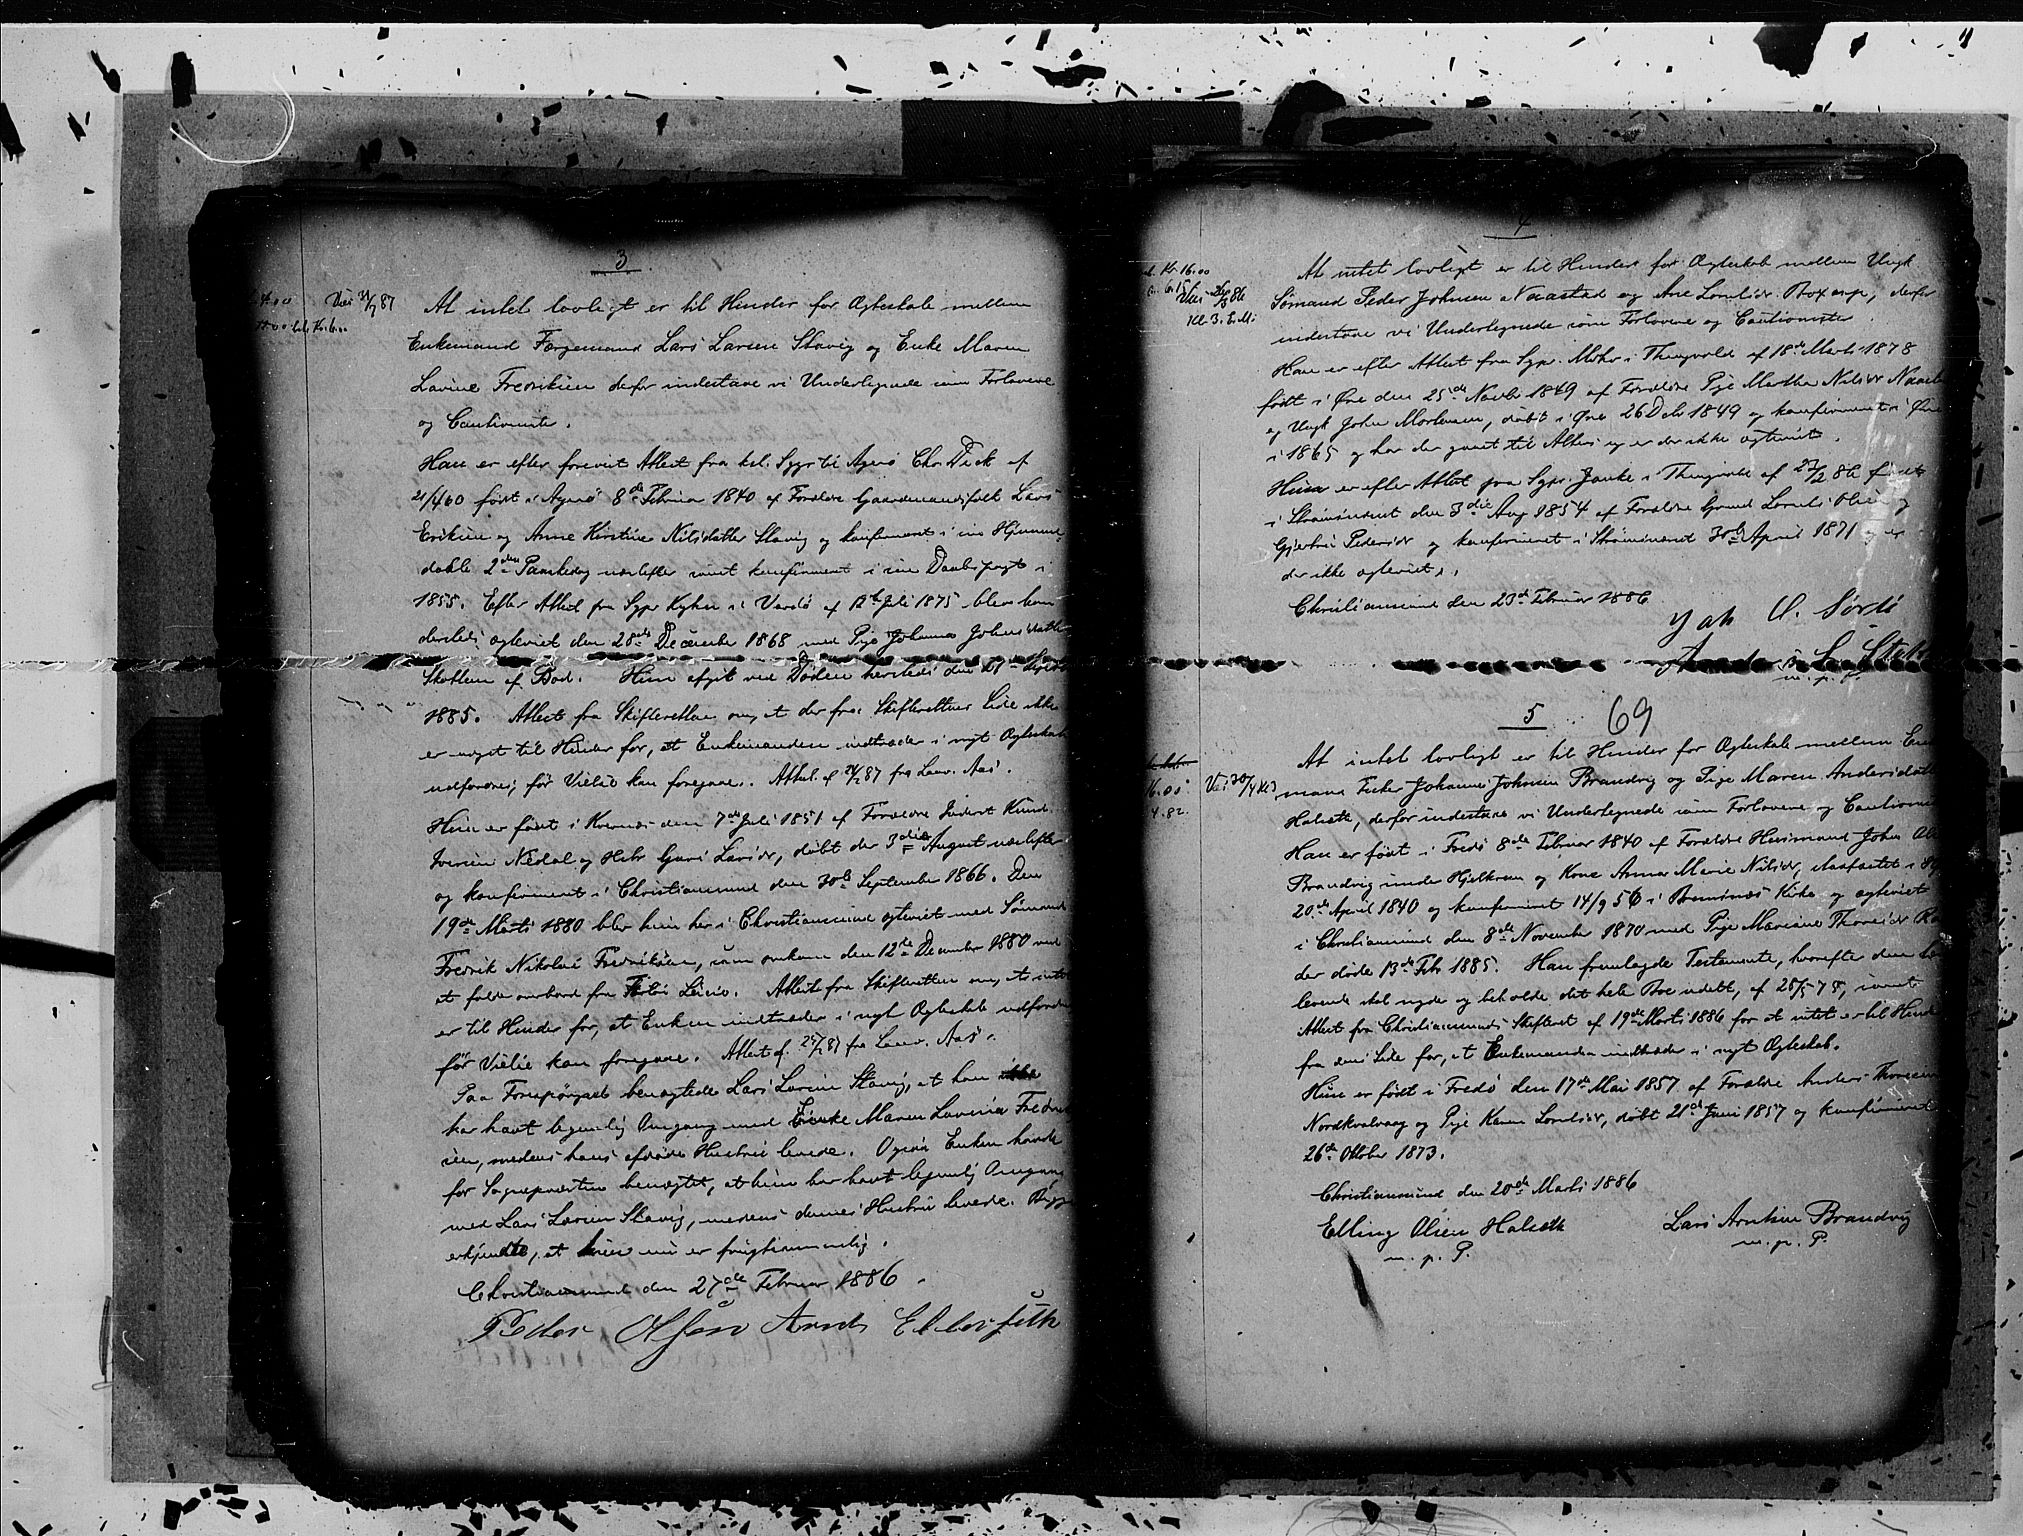 3
Viet 31/3 87
At intet lovligt er til Hinder for Ægteskab mellem
Enkemand Færgemand Lars Larsen Stavig og Enke Maren
Lavine Fredriksen derfor indestaae vi Underteignede som Forlovere
og Cautionister.
Han er efter forevist Attest fra kst. Sgpr til Agerø Chr. Dick af
21/4 60 født i Agerø 8de Februar 1840 af Forældre Gaardmandsfolk Lars
Eriksen og Anne Kirstine Nilsdatter Stavig og konfirmeret i
2den Paaskedag i
1855. Efter Attest fra Sgpr i Verdø af 12te Juli 1875 blev han
dersteds ægteviet den 28de December 1868 med Pige Johanna Johnsdatter
af Bod. Hun afgik ved Døden hersteds den
1885. Attest fra Skifteretten om, at der fra Skifterettens Side ikke
er noget til Hinder for, at Enkemanden indtræder i nyt Ægteskab
udfordres, før Vielse kan foregaae. Attest af 24/2 87 fra Aas.
Hun er født i Kvernes den 7de Juli 1851 af Forældre Inderst Knud
Iversen Nedal og Hstr Guri Larsdr, døbt den 3die August næstefter
og konfirmeret i Christianssund den 30te September 1866. Den
19de Marts 1880 blev hun her i Christianssund ægteviet med Sømand
Fredrik Nikolai Fredriksen, som omkom den 12te December 1880 ved
at falde overbord fra Attest fra Skifteretten om, at intet
er til Hinder for, at Enken indtræder i nyt Ægteskab udfordres
før Vielse kan foregaae. Attest af 25/2 87 fra Aas.
Paa Forespørgsel benægtede Lars Larsen Stavig, at han
har havt legemlig Omgang med Enke Maren Lavine Fredrik
sen, medens hans afdøde Hustru levede. Ogsaa Enken havde
for Sognepræsten benægtet, at hun har havt legemlig Omgang
med Lars Larsen Stavig, medens dennes Hustru levede. Begge
erkjendte, at hun nu er frugtsommelig.
Christianssund den 27de Februar 1886.
Peder Olsen Arnt
4
Kr. 16.00
Kl. 3. E.M.
At intet lovligt er til Hinder for Ægteskab mellem Ungk
Sømand Peder Johnsen Naastad og Ane Lorntsdr. derfor
indestaae vi Underteignede som Forlovere og Cautionister.
Han er efter Attest fra Sgpr. Møhr i Thingvold af 18de Marts 1878
født i Øre den 25de Novbr 1849 af Forældre Pige Martha Nilsdr
og Ungk John Mortensen, døbt i Øre 26 Debr 1849 og konfirmeret i Øre
i 1865 og har der gaaet til Alters og er der ikke ægteviet.
Hun er efter Attest fra Sgpr i Thingvold af 27/2 86 født
i Strømsneset den 3die Aug 1854 af Forældre Gmd Lornts Olsen og
Gjertru Pedersdr og konfirmeret i Strømsneset 30te April 1871 og er
der ikke ægteviet.
Christianssund den 23de Februar 1886
m. p. P.
5 69
16.00
4.82.
At intet lovligt er til Hinder for Ægteskab mellem Enke
mand Fisker Johannes Johnsen Brandvig og Pige Maren Andersdatter
Halseth, derfor indestaae vi Underteignede som Forlovere og Cautionister
Han er født i Fredø 8de Februar 1840 af Forældre Husmand John
Brandvig under Hjelkrem og Kone Anna Marie Nilsdr,
20de April 1840 og konfirmeret 14/9 56 i Bremsnes Kirke og ægteviet
i Christianssund den 8de November 1870 med Pige Mariane
der døde 13de Febr 1885. Han fremlagde Testamente, hvorefter den
levende skal nyde og beholde det hele Boe udelt, af samt
Attest fra Christianssunds Skifteret af 19de Marts 1886 for at intet er til Hinder
fra dens Side for, at Enkemanden indtræder i nyt Ægteskab.
Hun er født i Fredø den 17de Mai 1857 af Forældre Anders Thoresen
Nordkvalvaag og Pige Karen Lorntsdr, døbt 21de Juni 1857 og konfirmeret
26de Oktober 1873.
Christianssund den 20de Marts 1886
Elling Olsen Halseth
m. p. P.
Lars Arntsen Brandvig
m. p. P.